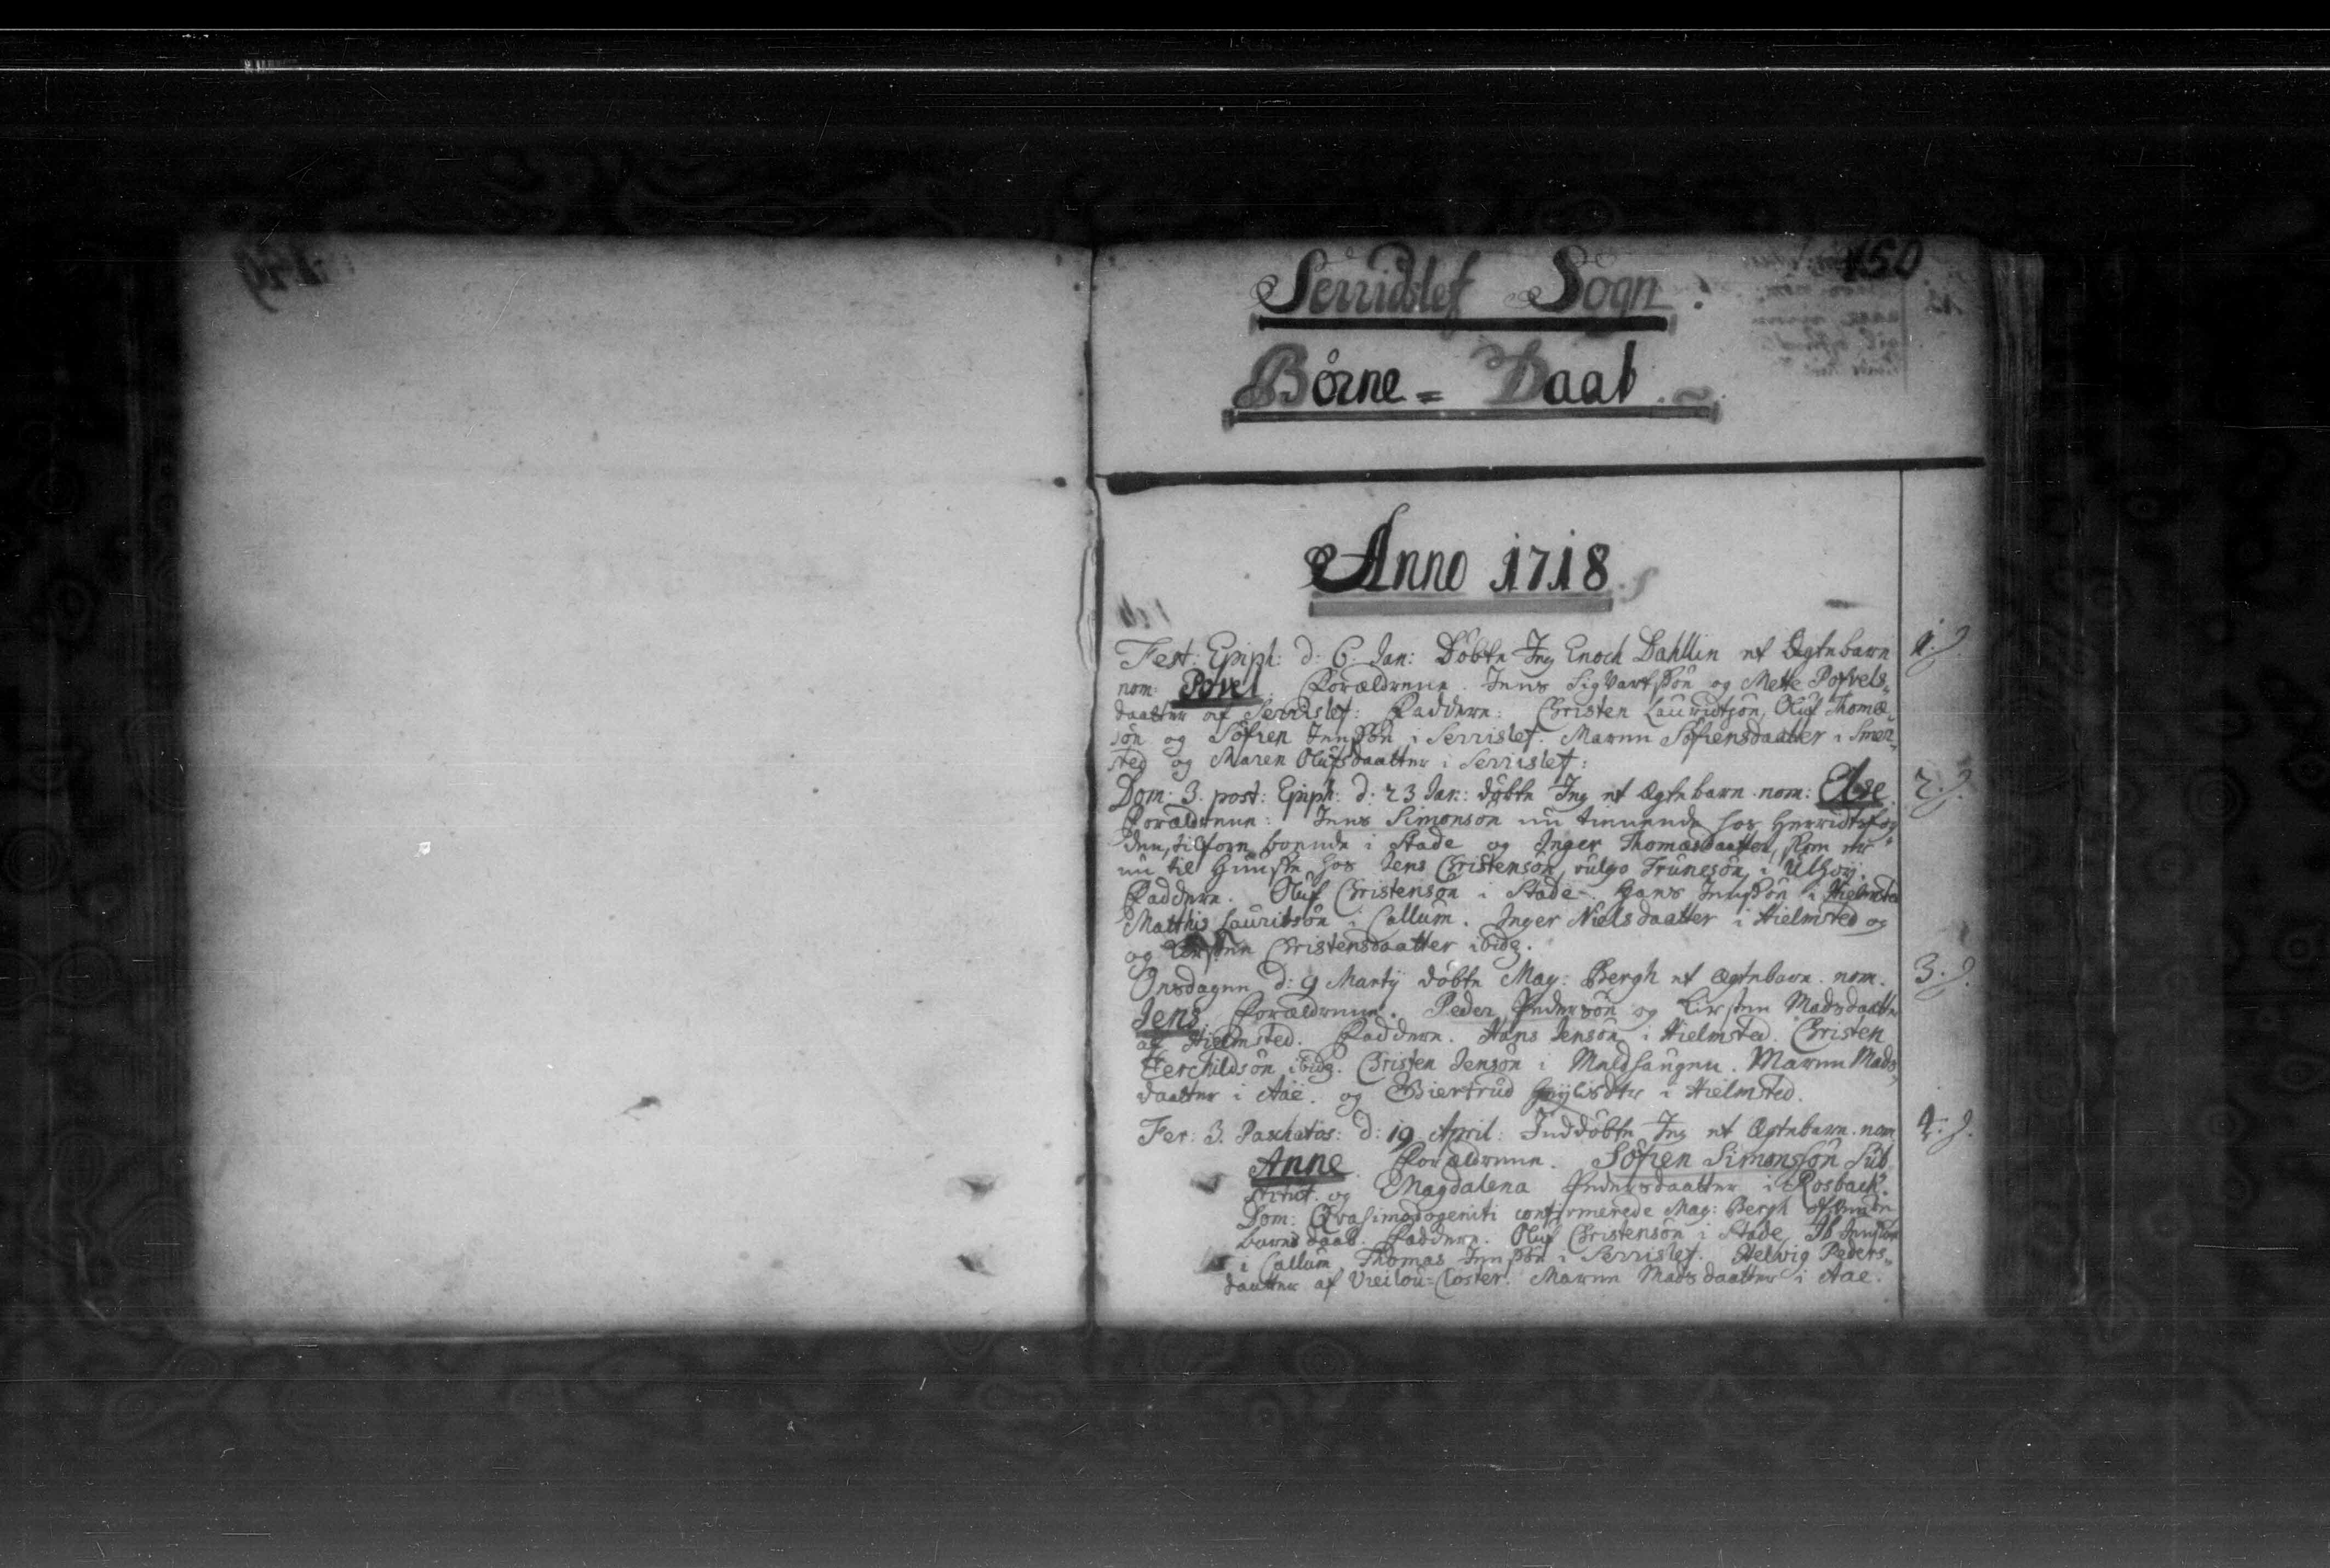 150
Serridslef Sogn.
Börne = Daab.
Anno 1718
Fest: Epiph: d: 6. Jan: Döbte Jeg Enoch Dahllin et Ægtebarn 1.
nom: Povel. Forældrene. Jens Sigvartsøn og Mette Pofvels-
daatter af Serrislef: Faddere: Christen Lauridtsøn, Oluf Thomæ-
søn og Söfren Jensøn i Serrislef. Maren Söfrensdaatter i Smer-
sted og Maren Olufsdaatter i Serrislef:
Dom: 3. post: Epiph: d: 23 Jan: döbte Jeg et ægtebarn nom: Else. 2.
Forældrene: Jens Simonsön nu tienende hos Herridtsfog
den, tilforn boende i Stade og Inger Thomædaatter, som er
nu til Huuse hos Jens Christensön, vulgo Trunesön, i Ulhöy.
Faddere. Oluf Christensön i Stade. Hans Jensøn i Hielmsted
Matthis Lauritsön i Callum. Inger Nielsdaatter i Hielmsted og
og Kirsten Christensdaatter ibidg.
Onsdagen d: 9 Martij döbte Mag: Bergh et ægtebarn nom. 3.
Jens. Forældrene. Peder Pedersön og Kirsten Madsdaatter
af Hielmsted. Faddere. Hans Jensön i Hielmsted. Christen
Terchildsön ibidg. Christen Jensön i Meldhaugen. Maren Mads-
daatter i Aae. og Giertrud i Hielmsted.
Fer: 3. Paschatos: d: 19 April: Inddöbte Jeg et Ægtebarn nom 4.
Anne. Forældrene. Söfren Simonsøn Sub
stitut. og Magdalena Pedersdaatter i Rosback.
Dom: Qvasimodogeniti confirmerede Mag: Bergh
barns daab. Faddere. Oluf Christensön i Stade, Ib Jensøn
i Callum, Thomas Jensøn i Serrislef. Helvig Peders-
daatter af Vreilou=Closter. Maren Madsdaatter i Aae.